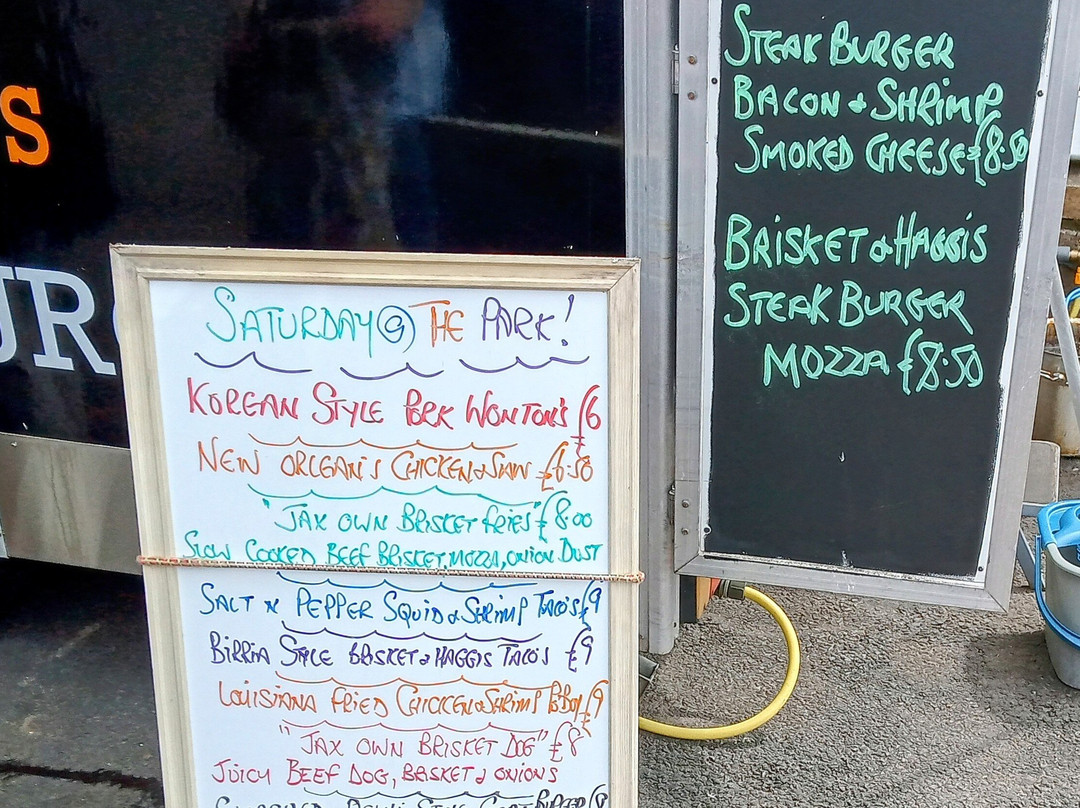 S
UR
SATURDAY @ THE PARK!
KOREAN STYLE PORK WONTON'S £6
NEW ORLEAN'S CHICKEN & SHW £6.50
"JAX OWN BRISKET FRIES" £8.00
SLOW COOKED BEEF BRISKET, MOZZA, ONION DUST
SALT N PEPPER SQUID & SHRIMP TACO'S £9
BIRRIA STYLE BRISKET & HAGGIS TACO'S £9
LOUISIANA FRIED CHICKEN & SHRIMP PO BOY £9
"JAX OWN BRISKET DOG" £8
JUICY BEEF DOG, BRISKET & ONIONS
STYLE
STEAK BURGER
BACON & SHRIMP
SMOKED CHEESE £8.50
BRISKET & HAGGIS
STEAK BURGER
MOZZA £8.50